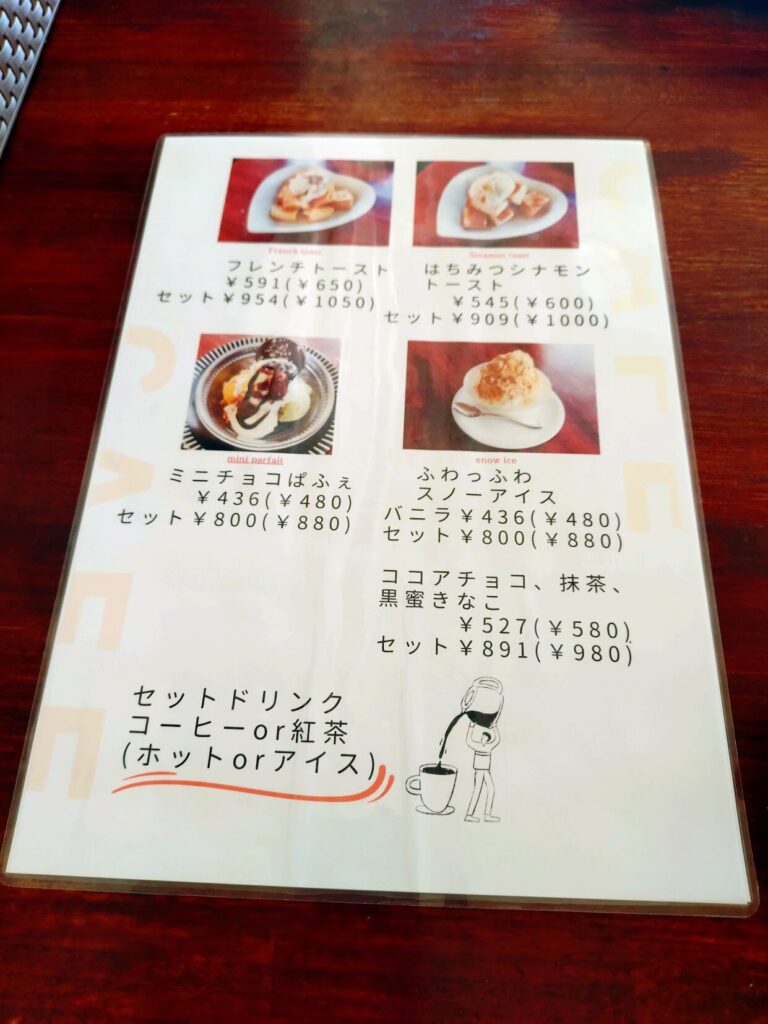 French toast
フレンチトースト
￥591(￥650)
セット￥954(￥1050)
Sinamon toast
はちみつシナモン
トースト
￥545(￥600)
セット￥909(￥1000)
mini parfait
ミニチョコぱふぇ
￥436(￥480)
セット￥800(￥880)
snow ice
ふわっふわ
スノーアイス
バニラ￥436(￥480)
セット￥800(￥880)
ココアチョコ、抹茶、
黒蜜きなこ
￥527(￥580)
セット￥891(￥980)
セットドリンク
コーヒーor紅茶
(ホットorアイス)
CAFE
CAFE